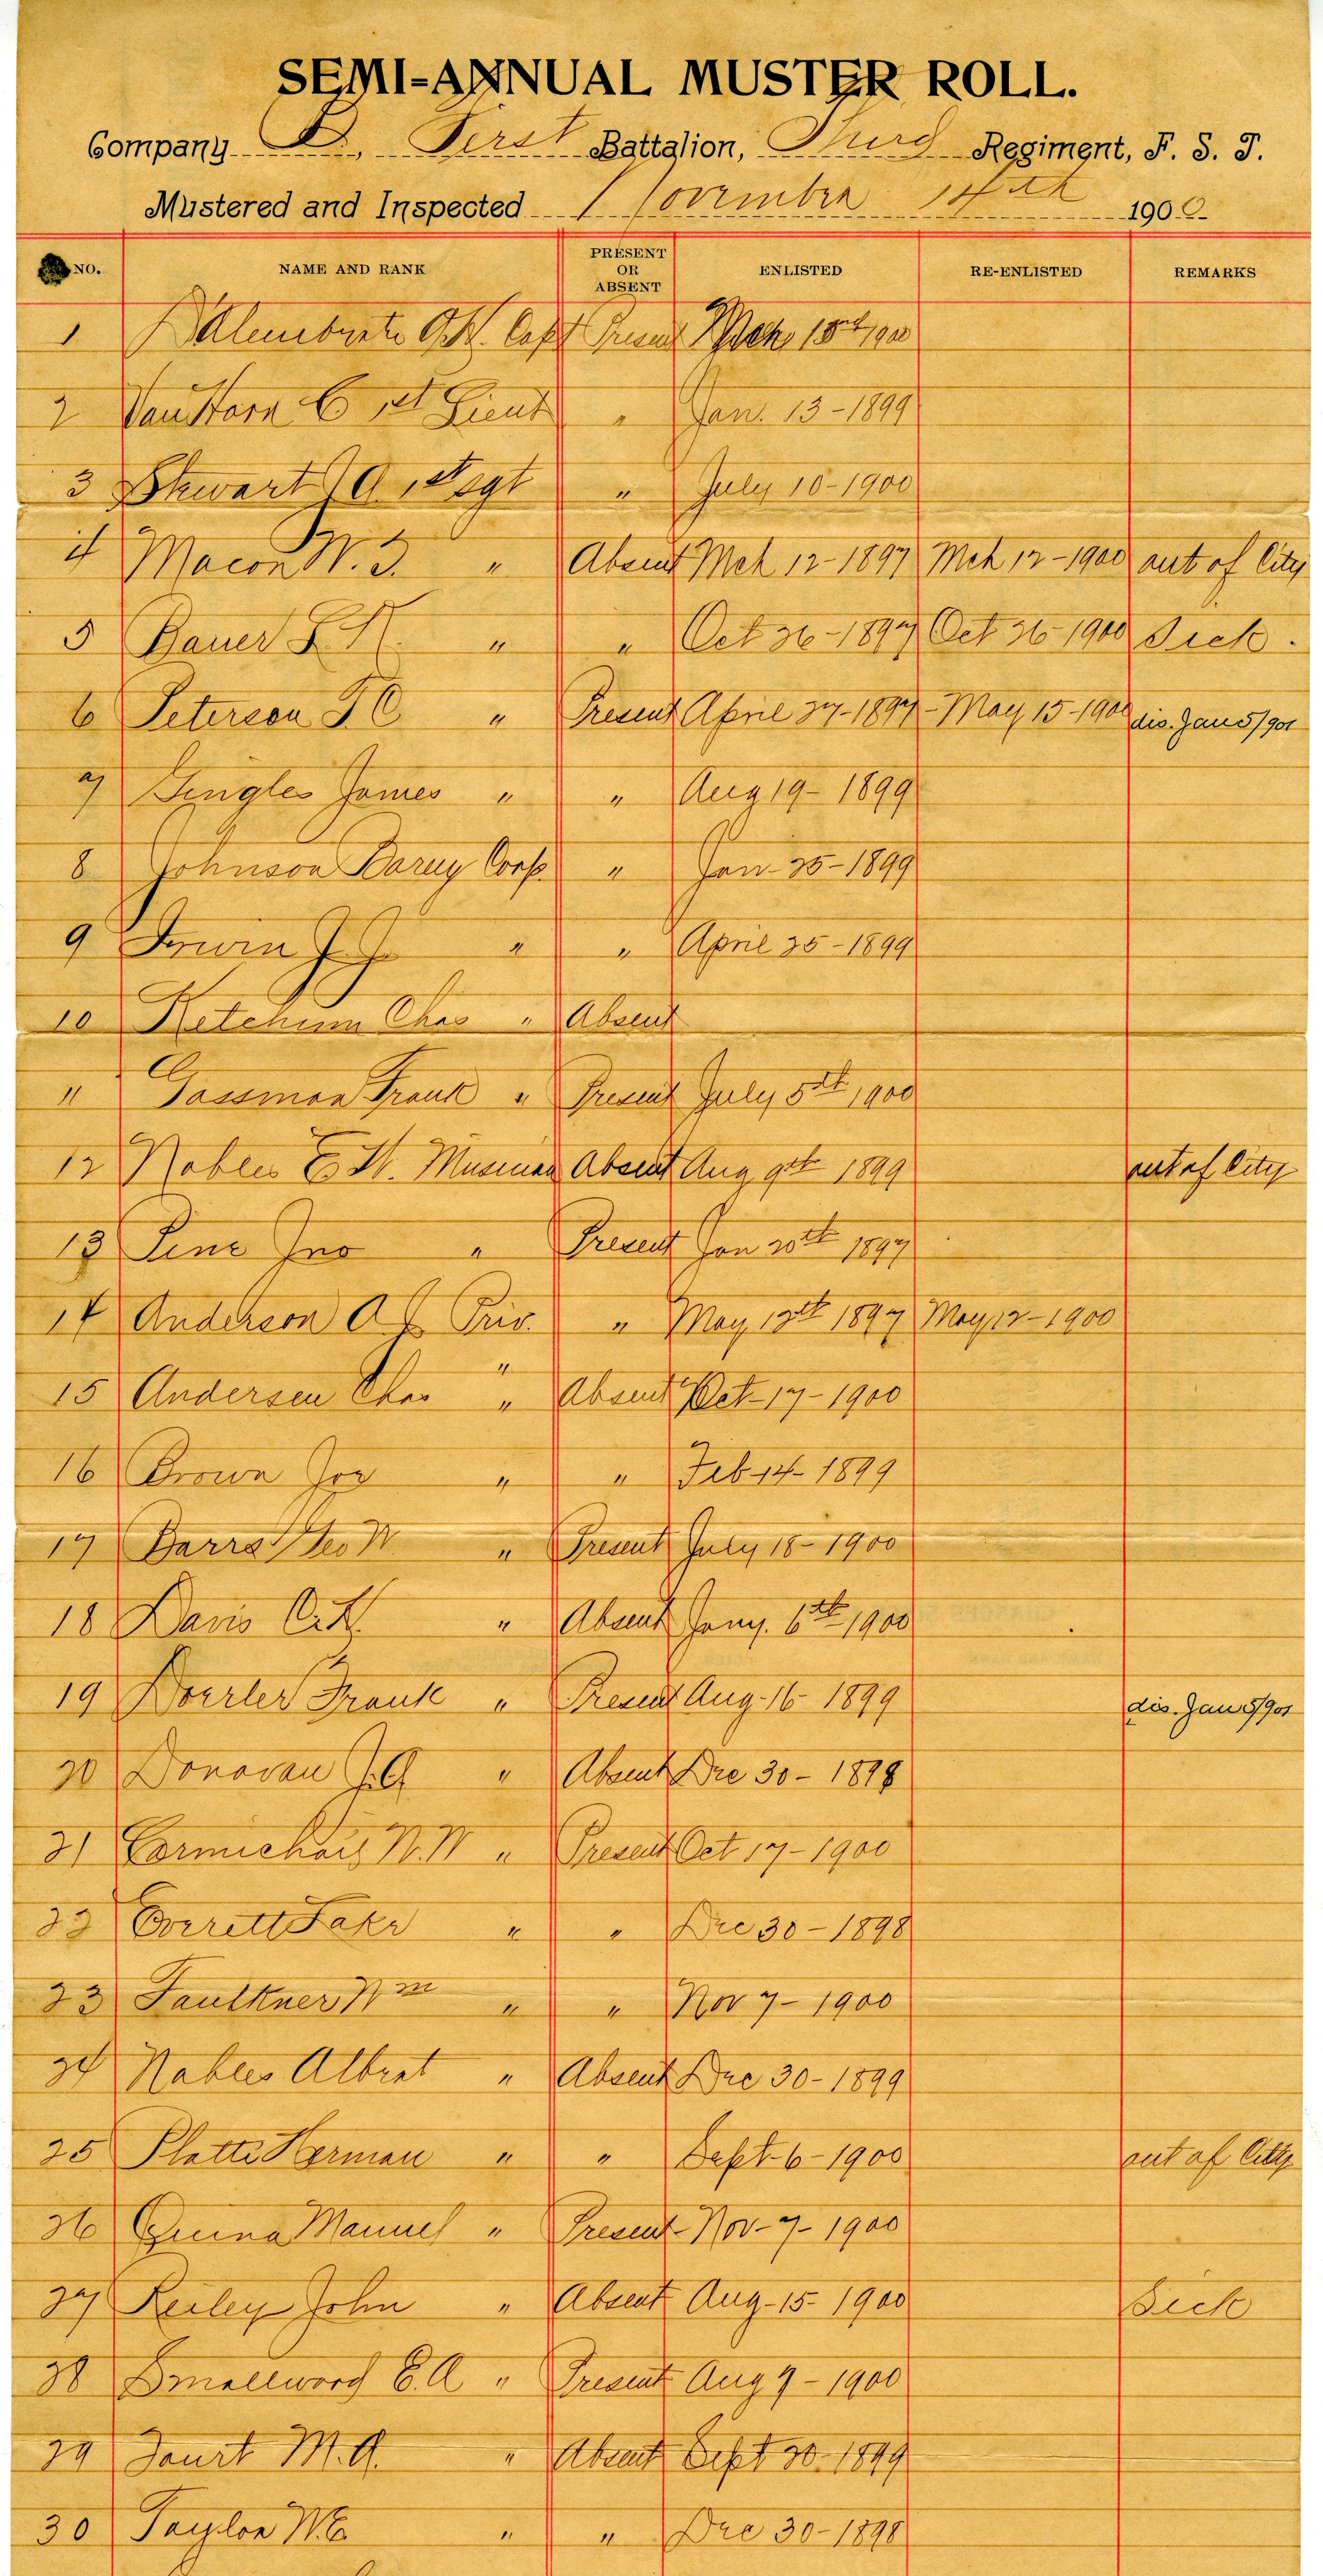 SEMI-ANNUAL MUSTER ROLL.
Company B, First Battalion, Third Regiment, F. S. T.
Mustered and Inspected November 14th 1900
NO. NAME AND RANK PRESENT OR ABSENT ENLISTED RE-ENLISTED REMARKS
1 D'Alemberte Capt Present Mch 15th 1900
2 Van Horn C 1st Lieut " Jan. 13-1899
3 Stewart J A 1st Sgt " July 10-1900
4 Macon W. I. " Absent Mch 12-1897 Mch 12-1900 out of City
5 Bauer " " Oct 26-1897 Oct 26-1900 Sick.
6 Peterson F C " Present April 27-1897 - May 15-1900 dis. Jan 5/901
7 Gingles James " " Aug 19-1899
8 Johnson Barny Corp. " Jan-25-1899
9 Irwin J. J. " " April 25-1899
10 Ketchum Chas " Absent
11 Gassman Frank " Present July 5th 1900
12 Nobles E. W. Musician Absent Aug 9th 1899 out of City
13 Pine Jno " Present Jan 20th 1897
14 Anderson A Priv. " May 12th 1897 May 12-1900
"
15 Andersen Chas " Absent Oct-17-1900
16 Brown Joe " " Feb-14-1899
17 Barrs Geo W " Present July 18-1900
18 Davis C. H. " Absent Jany. 6th 1900
19 Doerrler Frank " Present Aug-16-1899 dis. Jan 5/901
20 Donovan J. G " Absent Dec 30-1898
21 Carmichael N. W " Present Oct 17-1900
22 Everett Lake " " Dec 30-1898
23 Faulkner Wm " " Nov 7-1900
24 Nobles Albert " Absent Dec 30-1899
25 Platte Herman " " Sept-6-1900 out of City
26 Quina Manuel " Present Nov-7-1900
27 Reiley John " Absent Aug-15-1900 Sick
28 Smallwood E. A " Present Aug 9-1900
29 Touart M. A. " Absent Sept 20-1899
30 Taylor W. E. " " Dec 30-1898